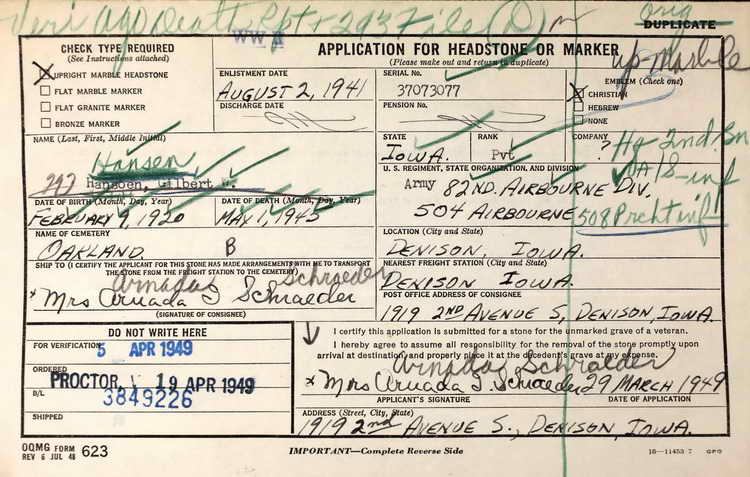 Veri Ago Death Rpt + 293 File (D)
orig
DUPLICATE
WW II
up-marble
CHECK TYPE REQUIRED
(See Instructions attached)
X UPRIGHT MARBLE HEADSTONE
FLAT MARBLE MARKER
FLAT GRANITE MARKER
BRONZE MARKER
APPLICATION FOR HEADSTONE OR MARKER
(Please make out and return in duplicate)
ENLISTMENT DATE
AUGUST 2, 1941
DISCHARGE DATE
SERIAL No.
37073077
PENSION No.
EMBLEM (Check one)
X CHRISTIAN
HEBREW
NONE
STATE
IOWA.
RANK
Pvt
COMPANY
?
Hq 2nd. Bn
NAME (Last, First, Middle Initial)
Hansen,
293 Hansoen, Gilbert W.
DATE OF BIRTH (Month, Day, Year)
FEBRUARY 9, 1920
DATE OF DEATH (Month, Day, Year)
MAY 1, 1945
U. S. REGIMENT, STATE ORGANIZATION, AND DIVISION
Army 82ND. AIRBOURNE DIV.
504 AIRBOURNE
508 Prcht inf
NAME OF CEMETERY
OAKLAND B
LOCATION (City and State)
DENISON, IOWA.
SHIP TO (I CERTIFY THE APPLICANT FOR THIS STONE HAS MADE ARRANGEMENTS WITH ME TO TRANSPORT
THE STONE FROM THE FREIGHT STATION TO THE CEMETERY)
Schraeder
* Mrs Aruada J. Schraeder
(SIGNATURE OF CONSIGNEE)
NEAREST FREIGHT STATION (City and State)
DENISON IOWA.
POST OFFICE ADDRESS OF CONSIGNEE
1919 2ND AVENUE S, DENISON, IOWA.
DO NOT WRITE HERE
FOR VERIFICATION
5 APR 1949
ORDERED
PROCTOR, V 19 APR 1949
B/L
3849226
SHIPPED
I certify this application is submitted for a stone for the unmarked grave of a veteran.
I hereby agree to assume all responsibility for the removal of the stone promptly upon
arrival at destination, and properly place it at the decedent's grave at my expense.
Schraeder
* Mrs Aruada J. Schraeder 29 MARCH 1949
APPLICANT'S SIGNATURE DATE OF APPLICATION
ADDRESS (Street, City, State)
1919 2nd AVENUE S., DENISON, IOWA.
OQMG FORM
REV 6 JUL 48 623
IMPORTANT—Complete Reverse Side
16—11453-7 GPO